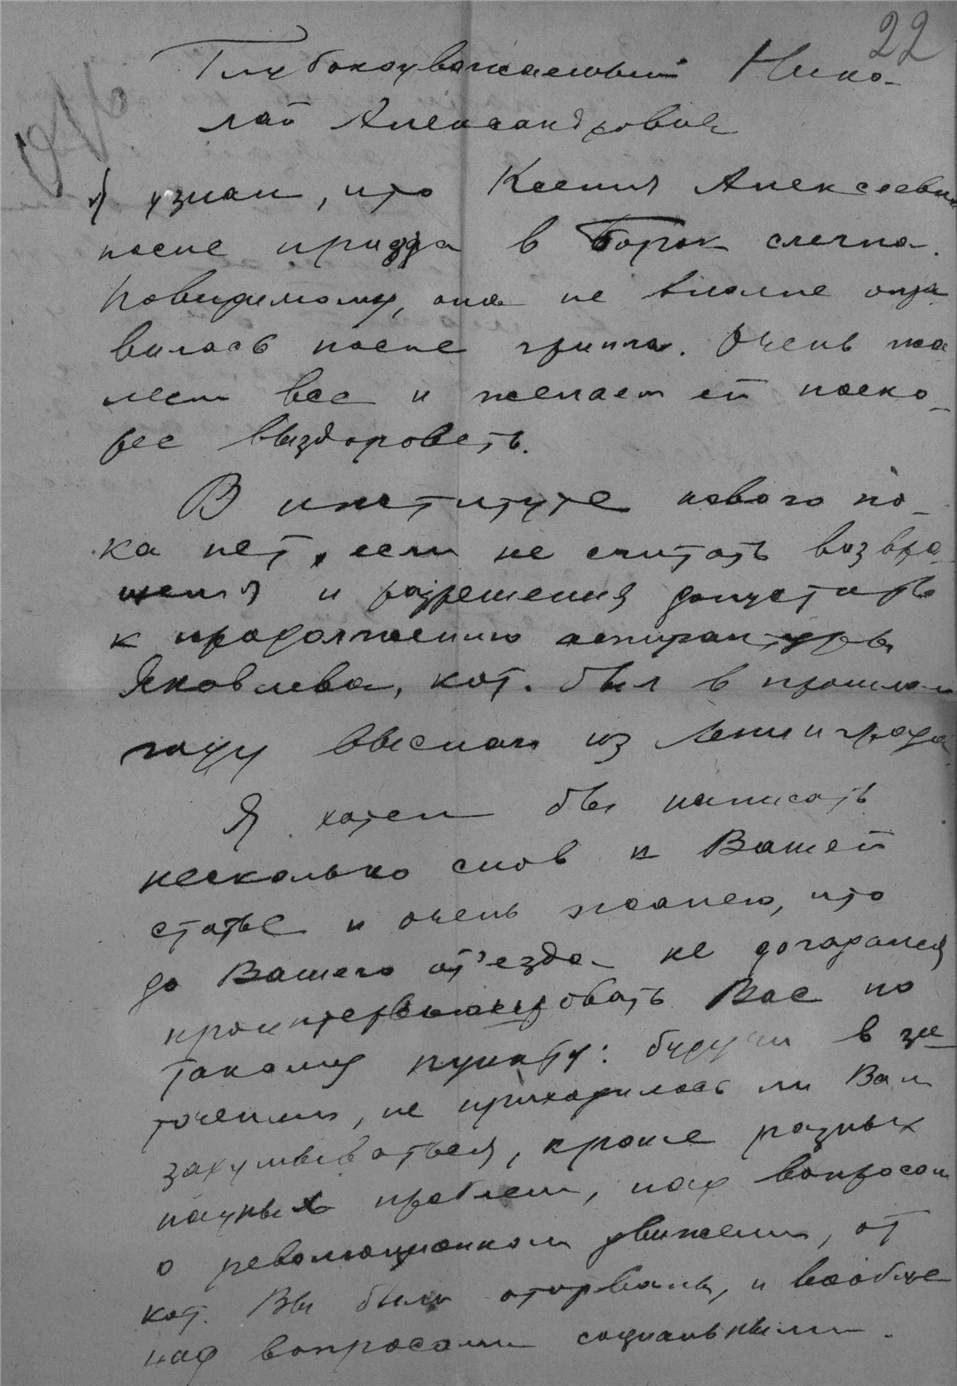 22
Глубокоуважаемый Нико-
лай Александрович
Я узнал, что Ксения Алексеевна
после приезда в Борок слегла.
Повидимому, она не вполне опра
вилась после гриппа. Очень жа
леем Вас и желаем ей поско-
рее выздороветь.
В институте нового по-
ка нет, если не считать возвра-
щения и разрешения допустить
к продолжению аспирантуры
Яковлева, кот. был в прошлом
году выслан из Ленинграда.
Я хотел бы написать
несколько слов к Вашей
статье и очень жалею, что
до Вашего от'езда не догадался
проинтервьюировать Вас по
такому пункту: будучи в за-
точении, не приходилось ли Вам
задумываться, кроме разных
научных проблем, над вопросом
о революционном движении, от
кот. Вы были оторваны, и вообще
над вопросами социальными.